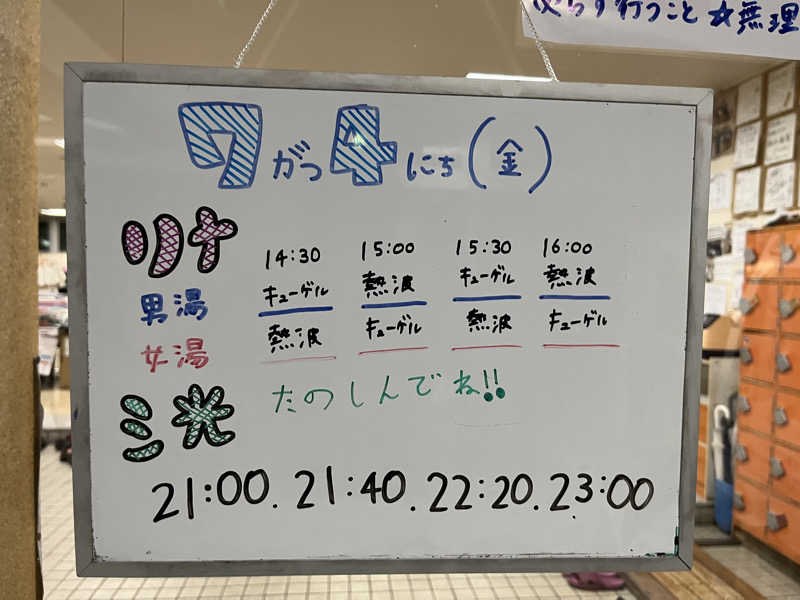 必らず行うこと☆無理
7がつ4にち(金)
リナ
14:30 15:00 15:30 16:00
キューゲル 熱波 キューゲル 熱波
男湯
熱波 キューゲル 熱波 キューゲル
女湯
たのしんでね!!
ミ光
21:00. 21:40. 22:20. 23:00